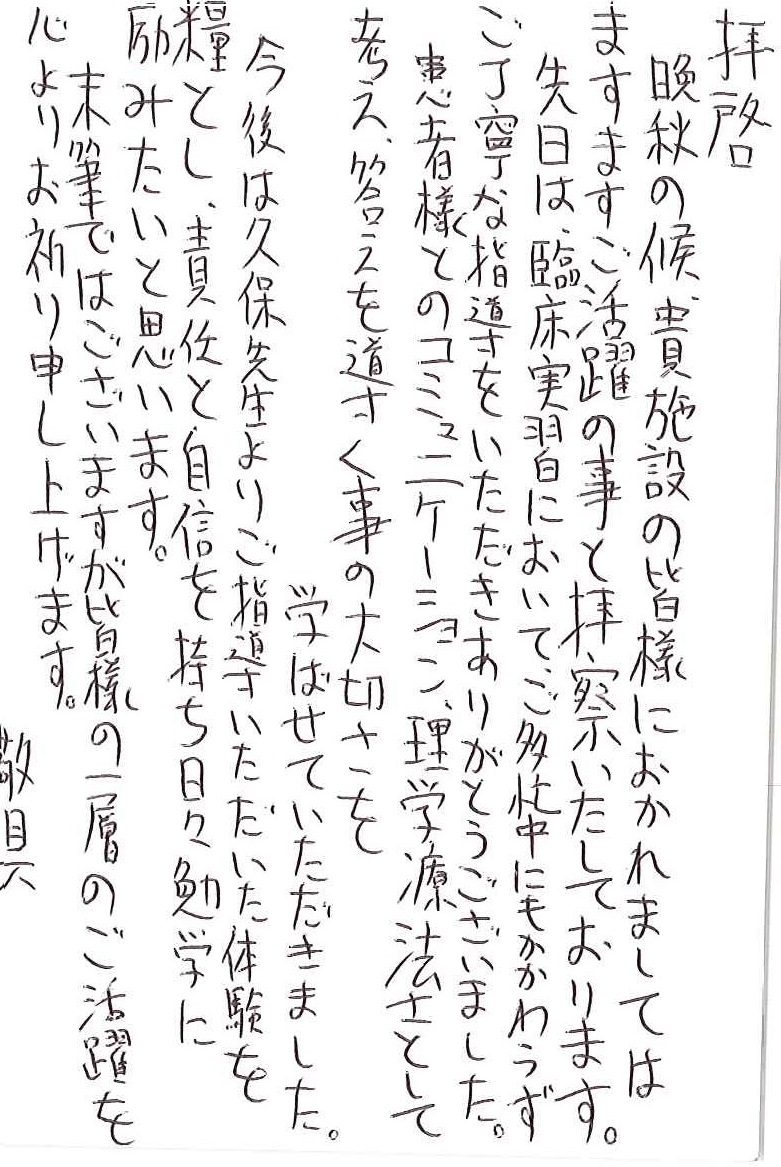 拝啓
晩秋の候、貴施設の皆様におかれましては
ますますご活躍の事と拝察いたしております。
先日は、臨床実習においてご多忙中にもかかわらず
ご丁寧な指導をいただきありがとうございました。
患者様とのコミュニケーション、理学療法士として
考え、答えを導く事の大切さを
学ばせていただきました。
今後は久保先生よりご指導いただいた体験を
糧とし、責任と自信を持ち日々勉学に
励みたいと思います。
末筆ではございますが皆様の一層のご活躍を
心よりお祈り申し上げます。
敬具